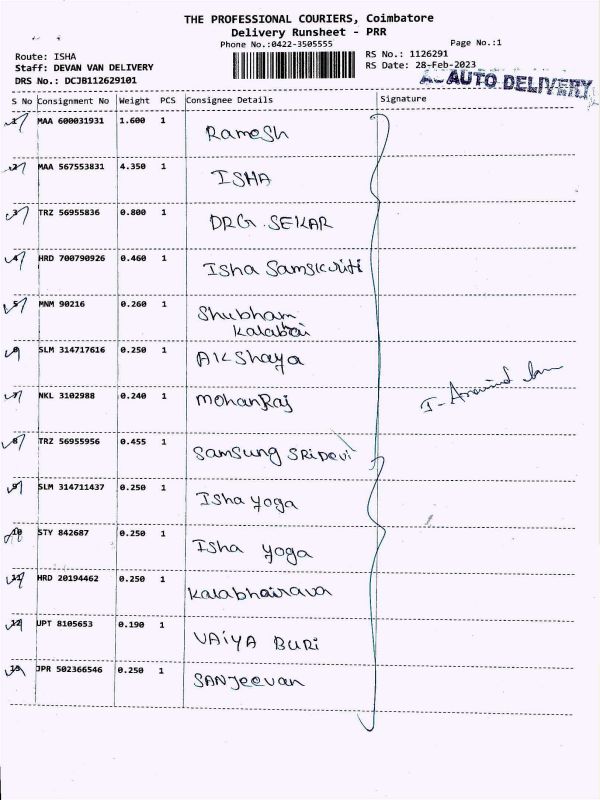 THE PROFESSIONAL COURIERS, Coimbatore
Delivery Runsheet - PRR
Phone No.:0422-3505555 Page No.:1
Route: ISHA RS No.: 1126291
Staff: DEVAN VAN DELIVERY RS Date: 28-Feb-2023
DRS No.: DCJB112629101
AUTO DELIVERY
S No Consignment No Weight PCS Consignee Details Signature
1 MAA 600031931 1.600 1 Ramesh
2 MAA 567553831 4.350 1 ISHA
3 TRZ 56955836 0.800 1 DRG. SEKAR
4 HRD 700790926 0.460 1 Isha Samskriti
5 MNM 90216 0.260 1 Shubham
Kalabai
6 SLM 314717616 0.250 1 Akshaya
7 NKL 3102988 0.240 1 MohanRaj
8 TRZ 56955956 0.455 1 Samsung SRIDEVI
9 SLM 314711437 0.250 1 Isha yoga
10 STY 842687 0.250 1 Isha yoga
11 HRD 20194462 0.250 1 Kalabhairava
12 UPT 8105653 0.190 1 VAIYA BURI
13 JPR 502366546 0.250 1 SANJeevan